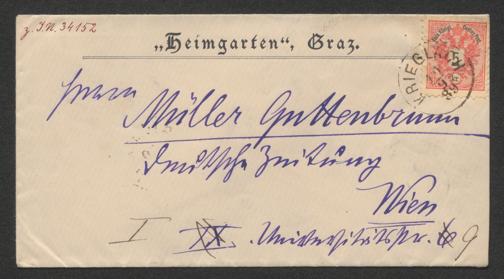 z. I.N. 34152
„Heimgarten“, Graz.
KRIEGLACH
Herrn
Müller Guttenbrunn
Deutsche Zeitung
Wien
I XX. Universitätsstr. 6 9